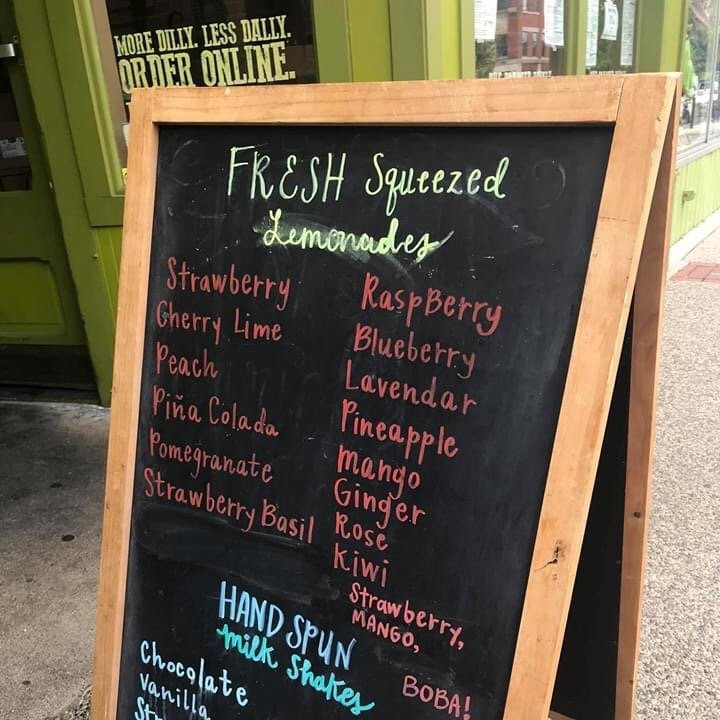 MORE DILLY. LESS DALLY.
ORDER ONLINE.
FRESH Squeezed
Lemonades
Strawberry
Cherry Lime
Peach
Piña Colada
Pomegranate
Strawberry Basil
RaspBerry
Blueberry
Lavendar
Pineapple
Mango
Ginger
Rose
Kiwi
Strawberry,
MANGO,
BOBA!
HAND SPUN
Milk Shakes
Chocolate
Vanilla